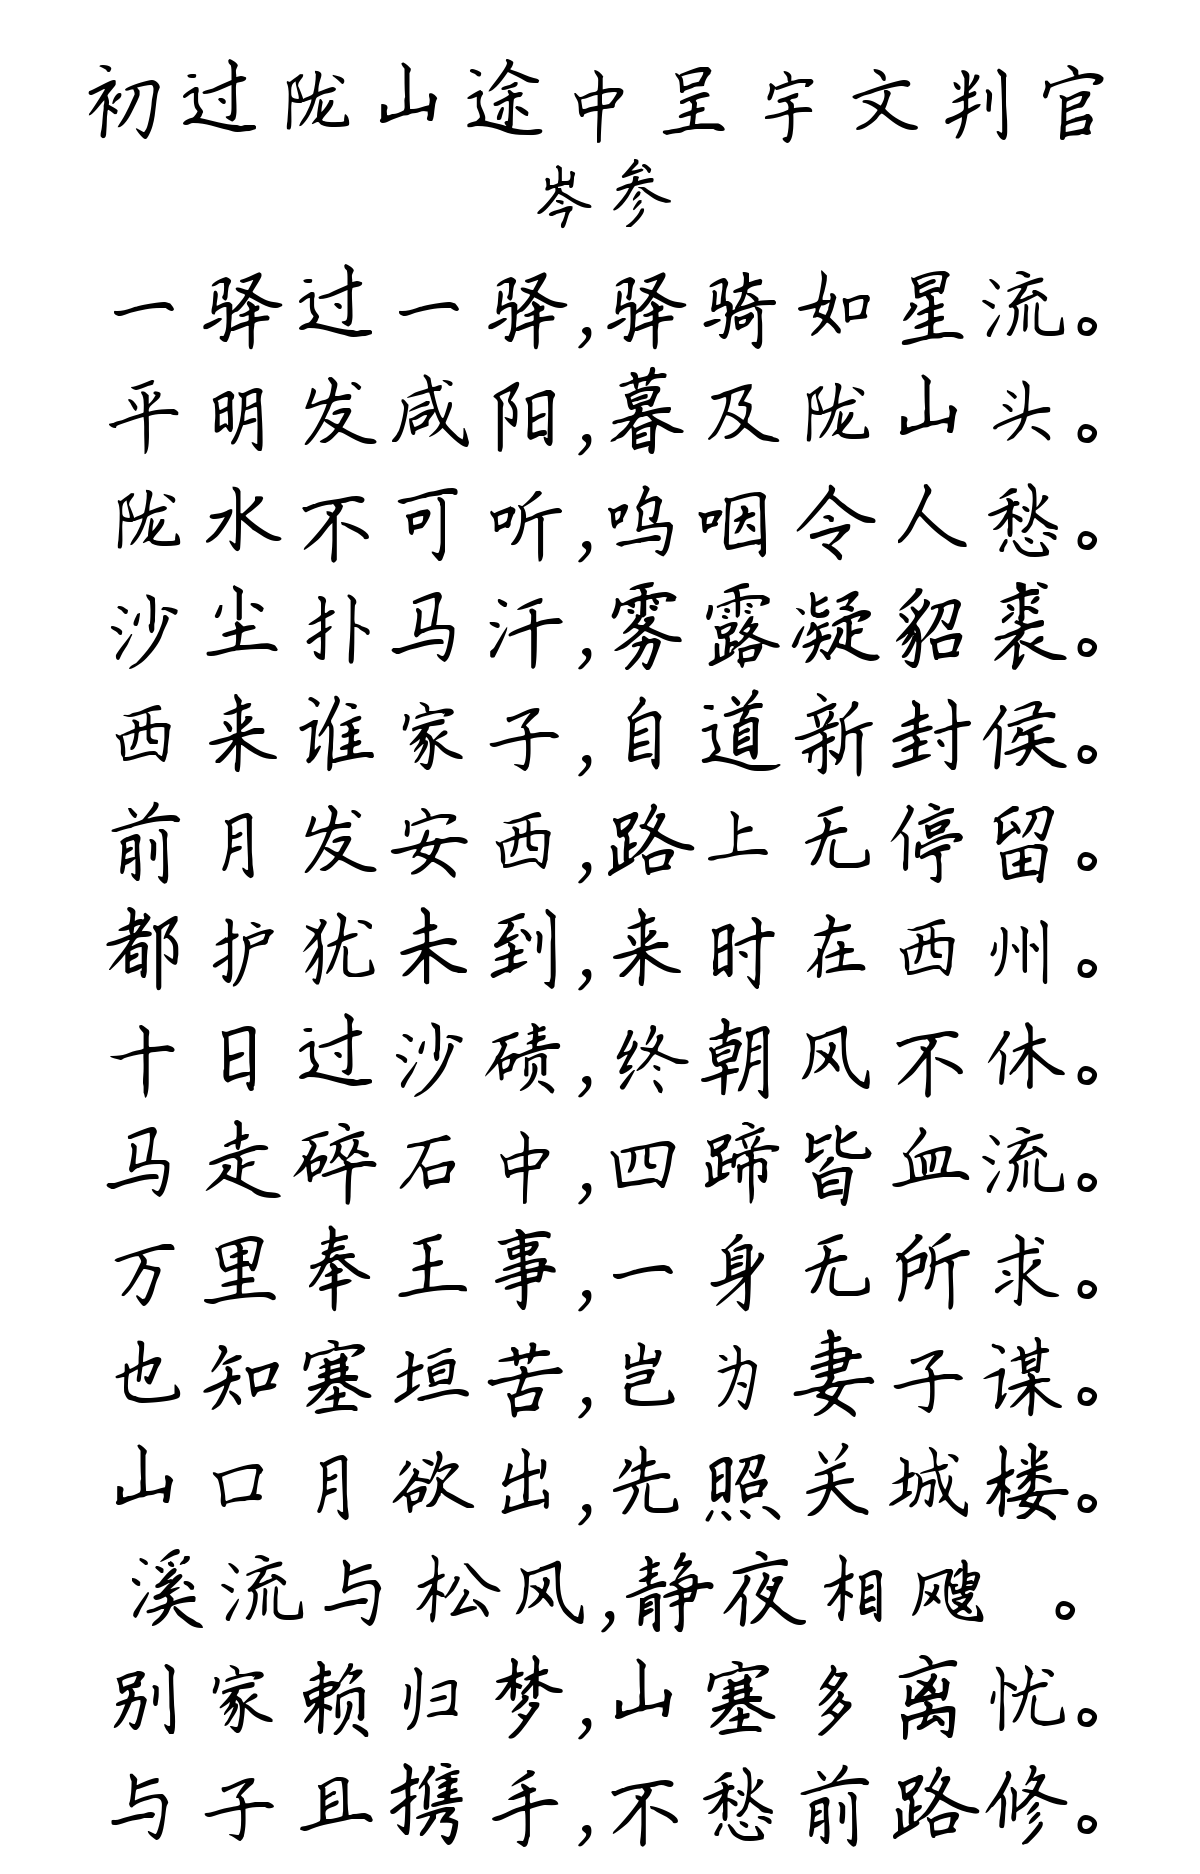 初过陇山途中呈宇文判官
岑参
一驿过一驿,驿骑如星流。
平明发咸阳,暮及陇山头。
陇水不可听,呜咽令人愁。
沙尘扑马汗,雾露凝貂裘。
西来谁家子,自道新封侯。
前月发安西,路上无停留。
都护犹未到,来时在西州。
十日过沙碛,终朝风不休。
马走碎石中,四蹄皆血流。
万里奉王事,一身无所求。
也知塞垣苦,岂为妻子谋。
山口月欲出,先照关城楼。
溪流与松风,静夜相飕 。
别家赖归梦,山塞多离忧。
与子且携手,不愁前路修。